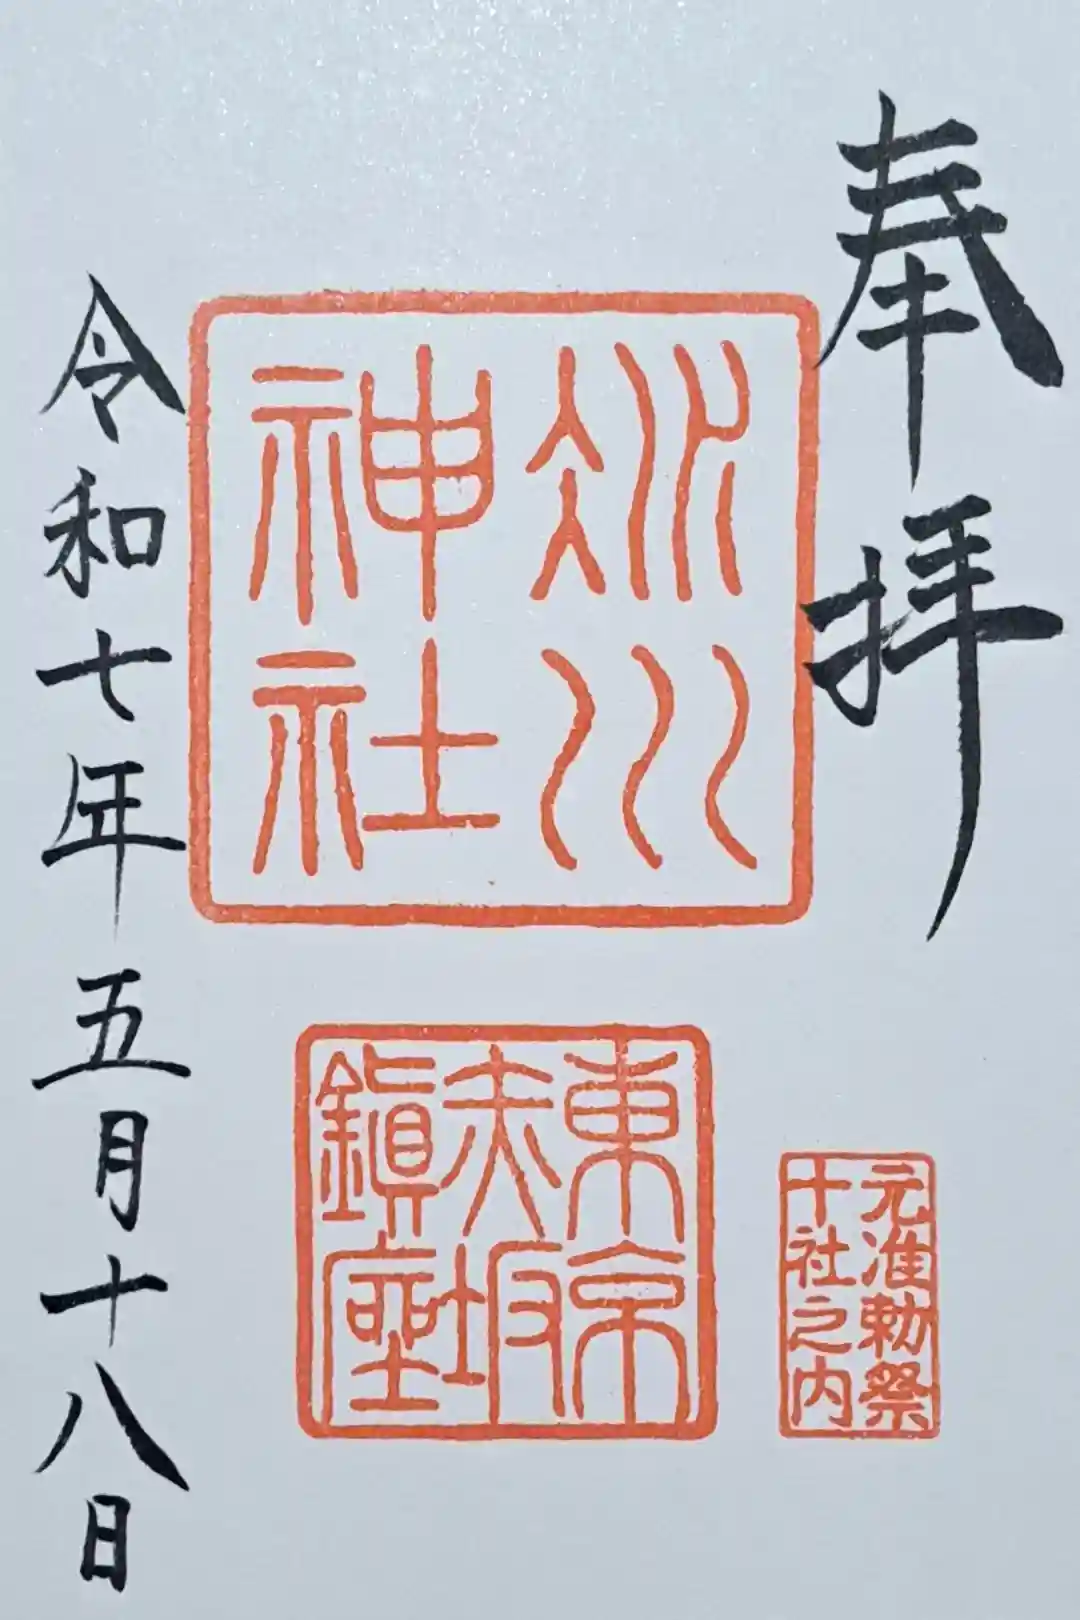 奉拝
冰川
神社
東京
赤坂
鎭座
元准勅祭
十社之内
令和七年五月十八日